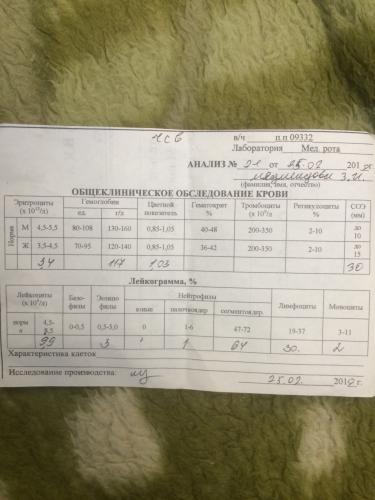 в/ч п.п 09332
Лаборатория Мед. рота
АНАЛИЗ № 21 от 25.02 201 г.
З.И.
(фамилия, имя, отчество)
ОБЩЕКЛИНИЧЕСКОЕ ОБСЛЕДОВАНИЕ КРОВИ
Эритроциты (х 10¹²/л) Гемоглобин Цветной показатель Гематокрит % Тромбоциты (х 10⁹/л) Ретикулоциты % СОЭ (мм)
ед. г/л
Норма М 4,5-5,5 80-108 130-160 0,85-1,05 40-48 200-350 2-10 до 10
Ж 3,5-4,5 70-95 120-140 0,85-1,05 36-42 200-350 2-10 до 15
3,4 117 1,03 30
Лейкограмма, %
Лейкоциты (х 10⁹/л) Базофилы Эозинофилы Нейтрофилы Лимфоциты Моноциты
юные палочкоядер. сегментоядер.
норма 4,5- 0-0,5 0,5-5,0 0 1-6 47-72 19-37 3-11
9,9 3 1 64 30. 2
Характеристика клеток
Исследование производства:
25.02. 201 г.